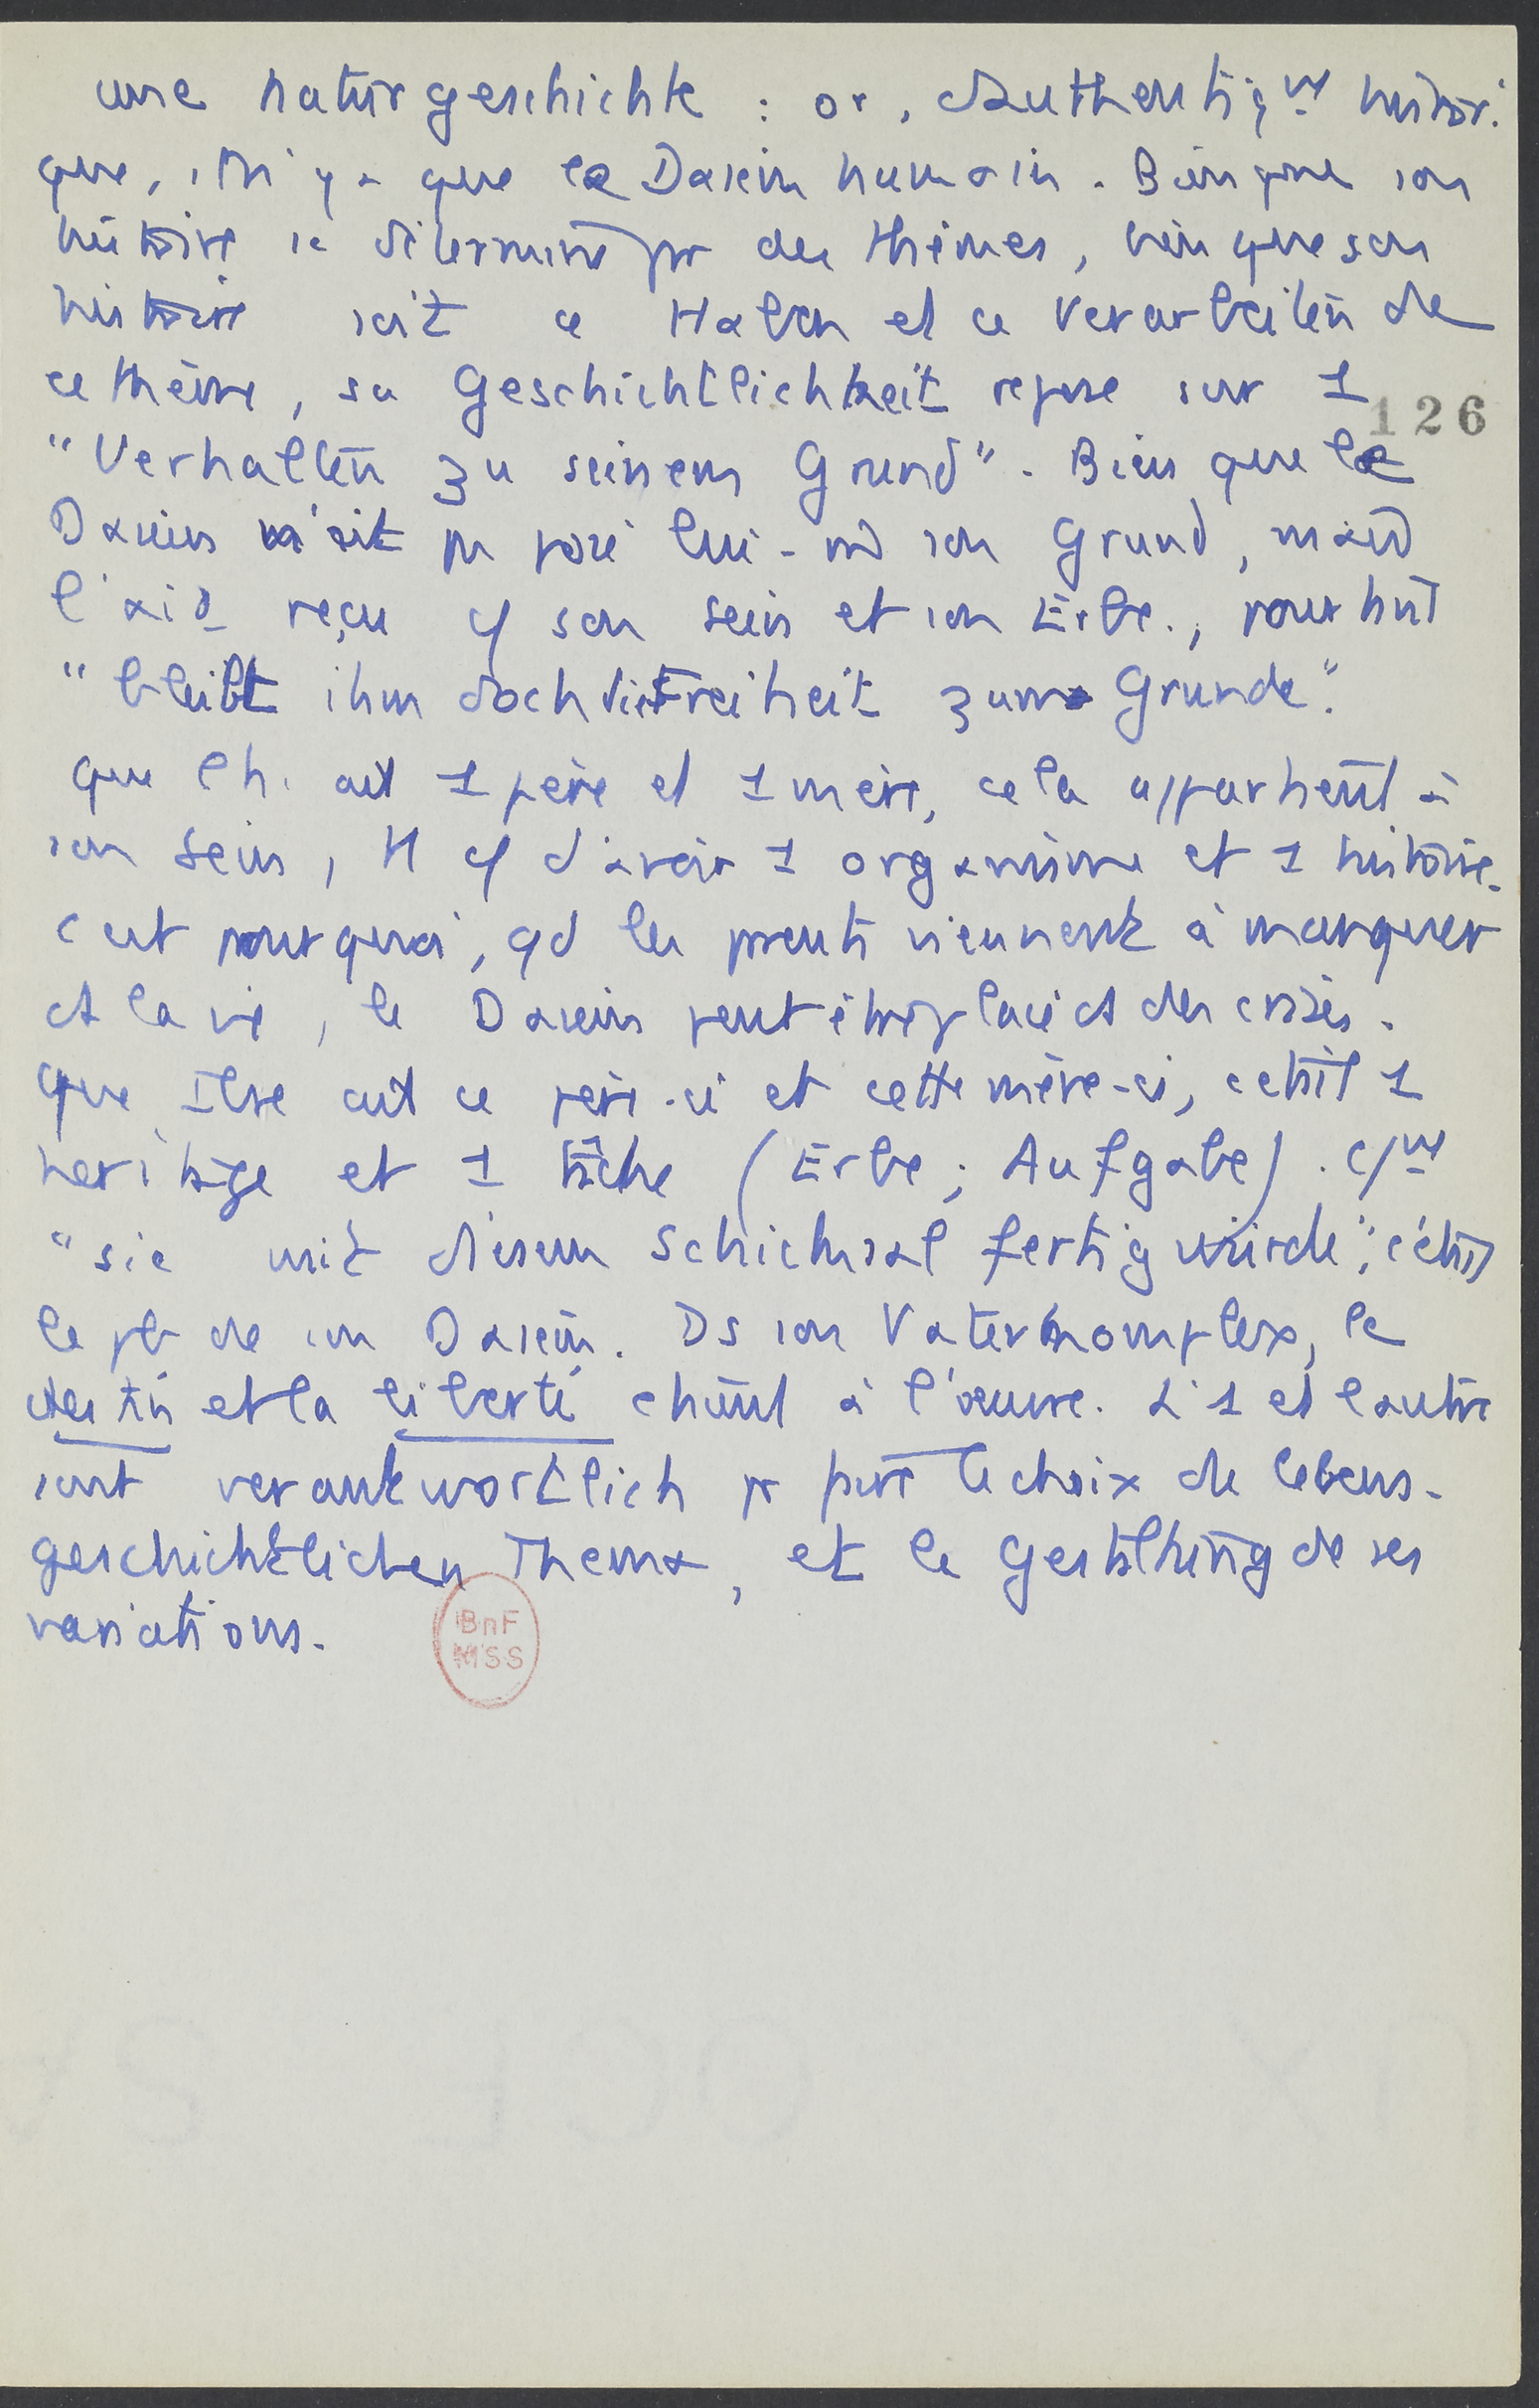 une Naturgeschichte : or, d'authentiqut histori-
que, il n'y a que le Dasein humain. Bien que son
histoire se détermine par des thèmes, bien que son
histoire soit ce Haben et ce Verarbeiten de
ce thème, sa Geschichtlichkeit repose sur 1
126
"Verhalten zu seinem Grund". Bien que le
Dasein n'ait pas posé lui-m son Grund, mais
l'ait reçu cf son Sein et son Erbe., pourtant
"bleibt ihm doch die Freiheit zum Grunde".
que l'h. ait 1 père et 1 mère, cela appartient à
son Sein, cf d'avoir 1 organisme et 1 histoire.
C'est pourquoi, qd les parents viennent à manquer
ds la vie, le Dasein peut être placé ds des crises.
Que Ilse ait ce père-ci et cette mère-ci, c'était 1
héritage et 1 tâche (Erbe ; Aufgabe). Cmt
"sie mit diesem Schicksal fertig würde", c'était
le pb de son Dasein. Ds son Vaterkomplex, le
destin et la liberté étaient à l'œuvre. L'1 et l'autre
sont verantwortlich pr le choix de lebens-
geschichtlichen Thema, et le Gestaltung de ses
variations.
BnF
MSS